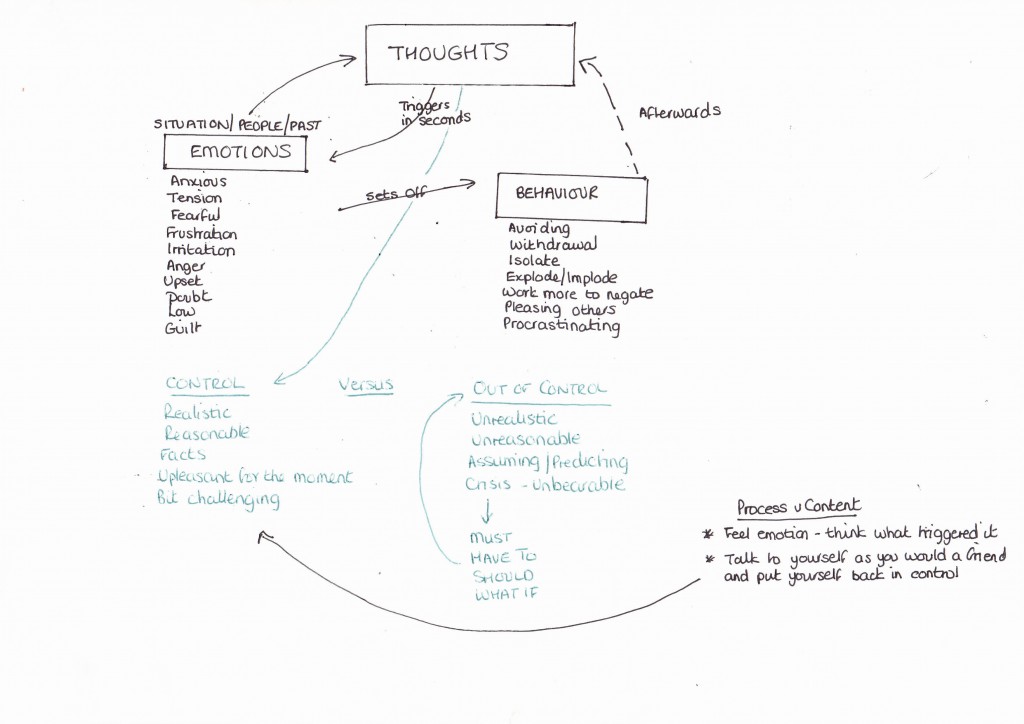 THOUGHTS
Triggers
in seconds
Afterwards
SITUATION/ PEOPLE/PAST
EMOTIONS
Anxious
Tension
Fearful
Frustration
Irritation
Anger
Upset
Doubt
Low
Guilt
sets off
BEHAVIOUR
Avoiding
Withdrawal
Isolate
Explode/Implode
Work more to negate
Pleasing others
Procrastinating
CONTROL
Realistic
Reasonable
Facts
Upleasant for the moment
Bit challenging
Versus
OUT OF CONTROL
Unrealistic
Unreasonable
Assuming/Predicting
Crisis - Unbearable
MUST
HAVE TO
SHOULD
WHAT IF
Process v Content
* Feel emotion - think what triggered it
* Talk to yourself as you would a friend
and put yourself back in control